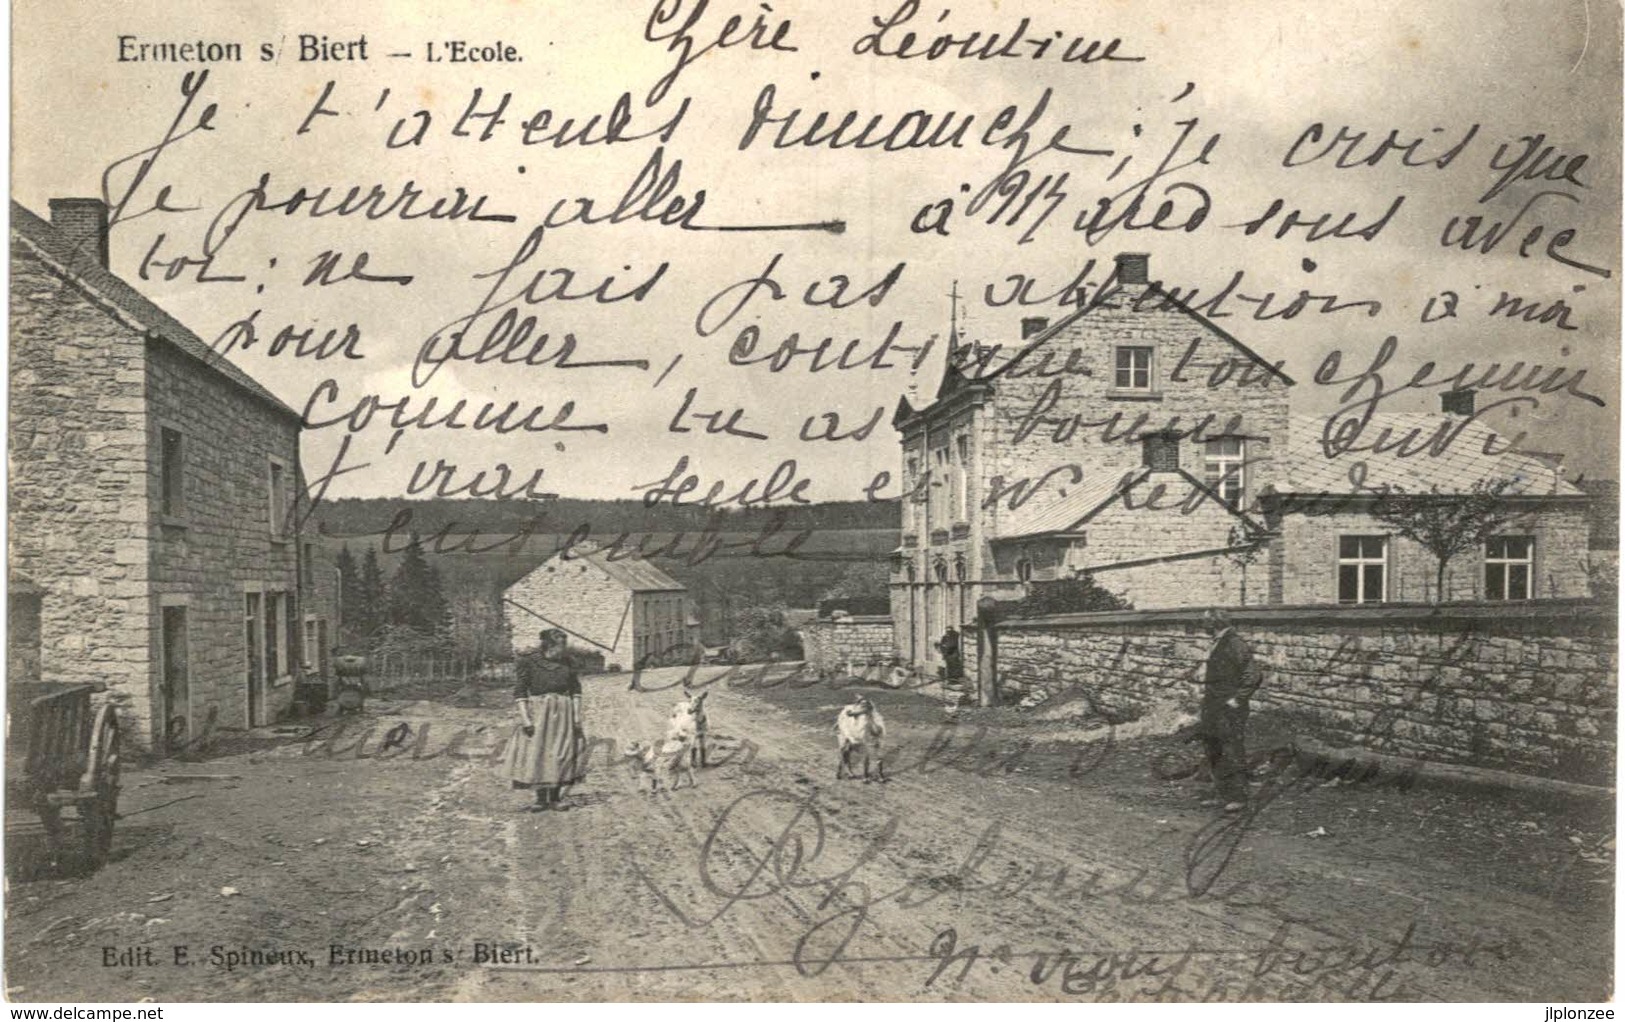 Ermeton s/ Biert — L'Ecole.
Chère Léontine
Je t'attends dimanche ; je crois que
je pourrai aller à
sous avec
toi ; ne fais pas attention à moi
pour aller, continue ton chemin
comme tu as bonne envie
j'irai seule et n. reviendrons
ensemble
et merci pour celles d'
Philomène
Ns. irons
Edit. E. Spineux, Ermeton s/ Biert.
www.delcampe.net
jlplonzee